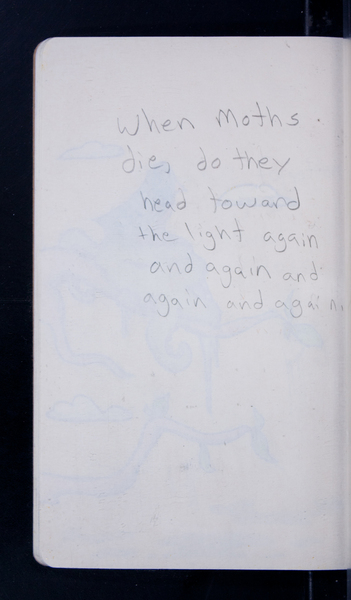 When Moths
die, do they
head toward
the light again
and again and
again and again.